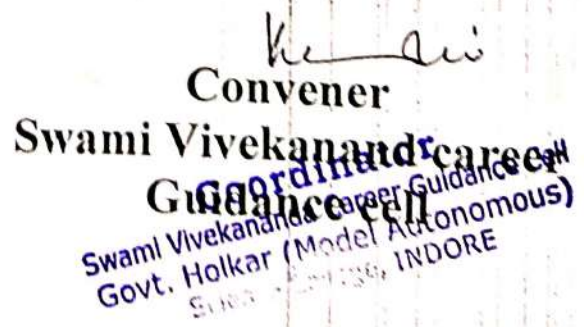 Convener
Swami Vivekanand career
Guidance cell
Coordinator
Swami Vivekananda Career Guidance Cell
Govt. Holkar (Model Autonomous)
INDORE